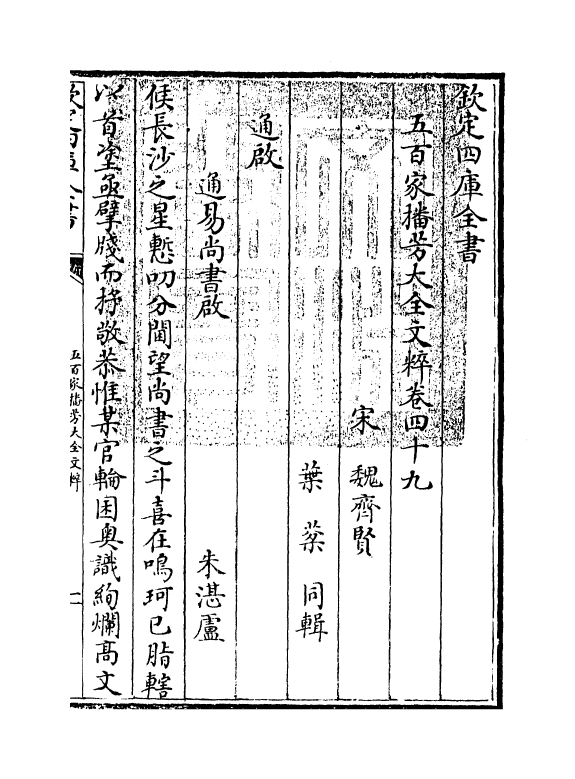 欽定四庫全書
五百家播芳大全文粹卷四十九
宋 魏齊賢
葉棻 同輯
通啟
通易尚書啟 朱湛盧
候長沙之星慙叨分閫望尚書之斗喜在鳴珂已脂轄
以首塗亟擘牋而抒敬恭惟某官輪囷奥識絢爛髙文
欽定四庫全書
五百家播芳大全文粹
一